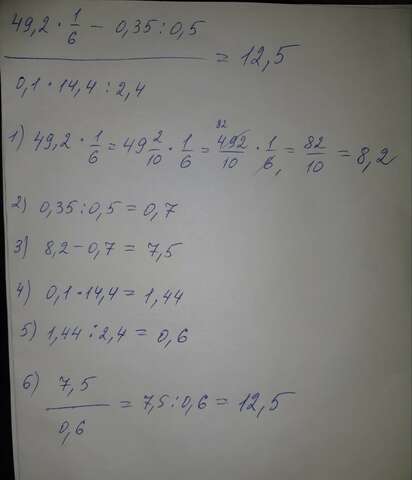 49,2 · 1/6 − 0,35 : 0,5
0,1 · 14,4 : 2,4
= 12,5
1) 49,2 · 1/6 = 49 2/10 · 1/6 = 492/10 · 1/6 = 82/10 = 8,2
82
1
2) 0,35 : 0,5 = 0,7
3) 8,2 − 0,7 = 7,5
4) 0,1 · 14,4 = 1,44
5) 1,44 : 2,4 = 0,6
6) 7,5/0,6 = 7,5 : 0,6 = 12,5